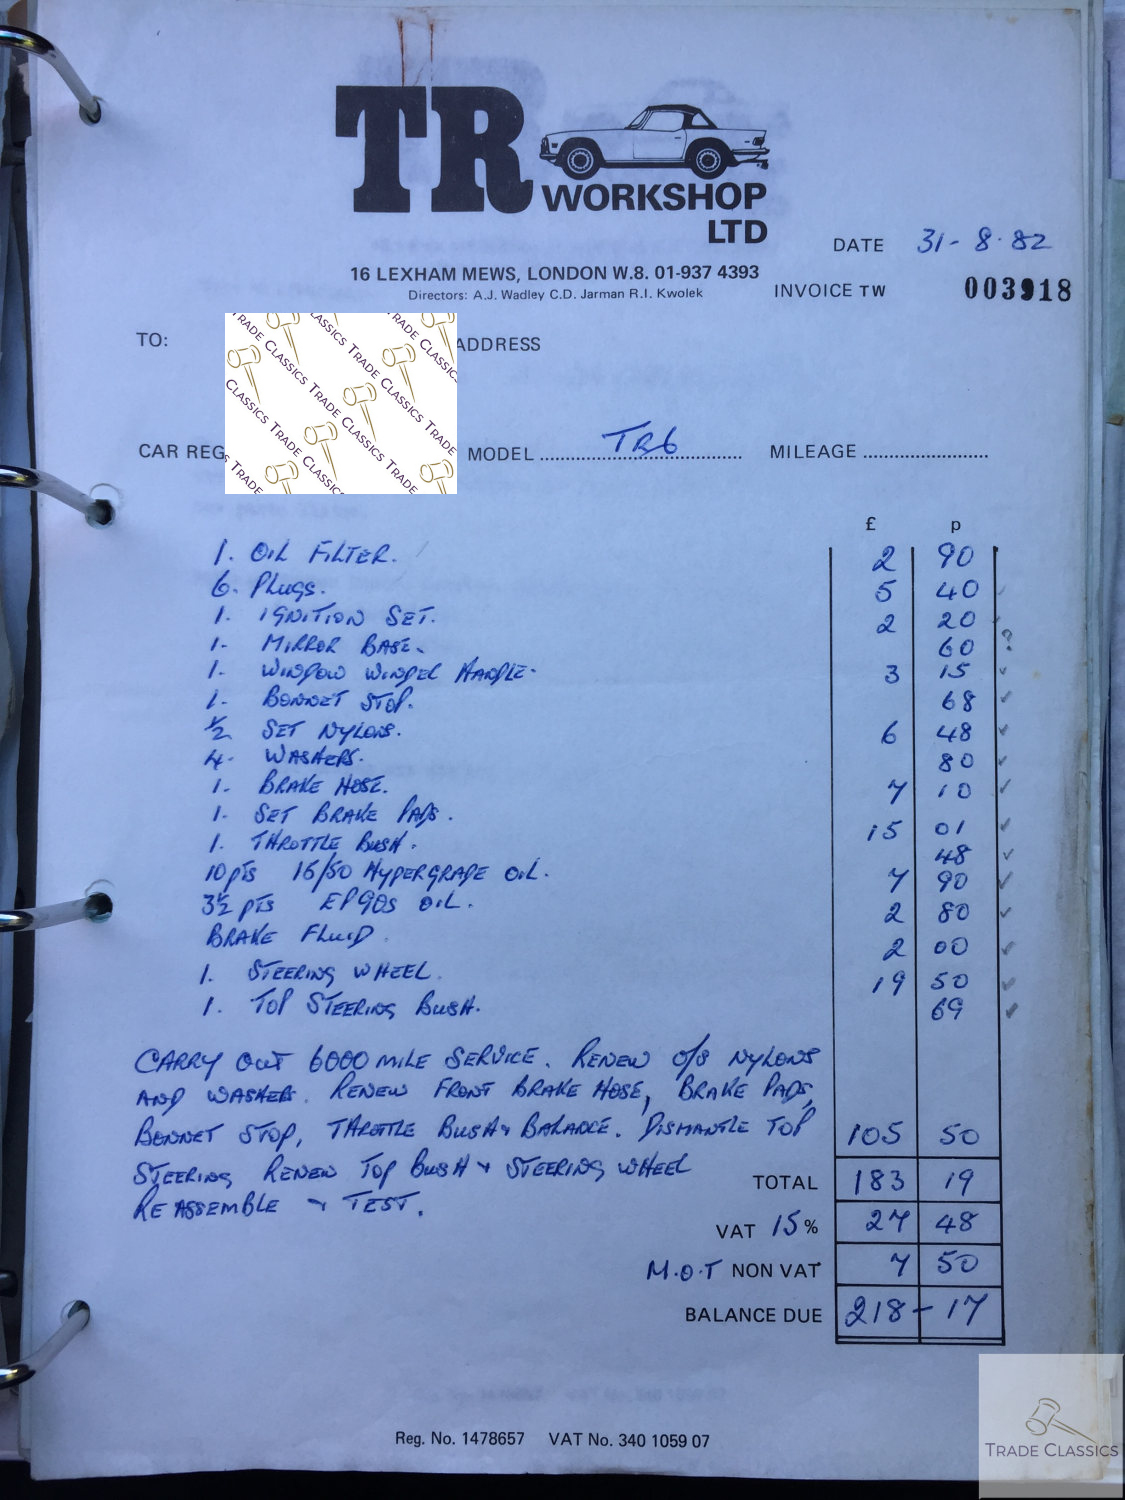 TR
WORKSHOP
LTD
DATE 31-8-82
16 LEXHAM MEWS, LONDON W.8. 01-937 4393
Directors: A.J. Wadley C.D. Jarman R.I. Kwolek
INVOICE TW 003918
TO: ADDRESS
CAR REG MODEL TR6 MILEAGE
£ p
1. OIL FILTER. 2 90
6. PLUGS. 5 40
1. IGNITION SET. 2 20
1. MIRROR BASE. 60 ?
1. WINDOW WINDER HANDLE. 3 15
1. BONNET STOP. 68
½ SET NYLONS. 6 48
4. WASHERS. 80
1. BRAKE HOSE. 7 10
1. SET BRAKE PADS. 15 01
1. THROTTLE BUSH. 48
10 pts 16/50 HYPERGRADE OIL. 7 90
3½ pts EP90s OIL. 2 80
BRAKE FLUID. 2 00
1. STEERING WHEEL. 19 50
1. TOP STEERING BUSH. 69
CARRY OUT 6000 MILE SERVICE. RENEW O/S NYLONS
AND WASHERS. RENEW FRONT BRAKE HOSE, BRAKE PADS,
BONNET STOP, THROTTLE BUSH & BALANCE. DISMANTLE TOP 105 50
STEERING RENEW TOP BUSH + STEERING WHEEL
TOTAL 183 19
RE ASSEMBLE + TEST.
VAT 15% 27 48
M.O.T NON VAT 7 50
BALANCE DUE 218-17
Reg. No. 1478657 VAT No. 340 1059 07
TRADE CLASSICS